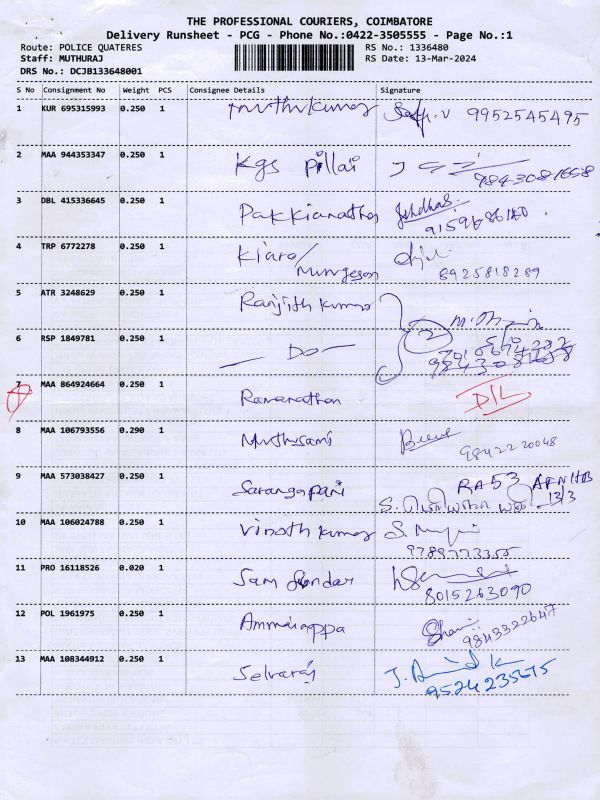 THE PROFESSIONAL COURIERS, COIMBATORE
Delivery Runsheet - PCG - Phone No.:0422-3505555 - Page No.:1
Route: POLICE QUATERES RS No.: 1336480
Staff: MUTHURAJ RS Date: 13-Mar-2024
DRS No.: DCJB133648001
S No Consignment No Weight PCS Consignee Details Signature
1 KUR 695315993 0.250 1 muthukumar 9952545495
2 MAA 944353347 0.250 1 Kgs Pillai
9843081658
3 DBL 415336645 0.250 1
4 TRP 6772278 0.250 1
8925818289
5 ATR 3248629 0.250 1 Ranjith Kumar
6 RSP 1849781 0.250 1 — Do — 2
7 MAA 864924664 0.250 1 D/L
8 MAA 106793556 0.290 1 Muthusami
9842220048
9 MAA 573038427 0.250 1 Sarangapani RA53
13/3
10 MAA 106024788 0.250 1 Vinoth Kumar
9789773355
11 PRO 16118526 0.020 1 Sam Sundar
8015263090
12 POL 1961975 0.250 1 Ammaiappa
9843322647
13 MAA 108344912 0.250 1 Selvaraj
9524235675